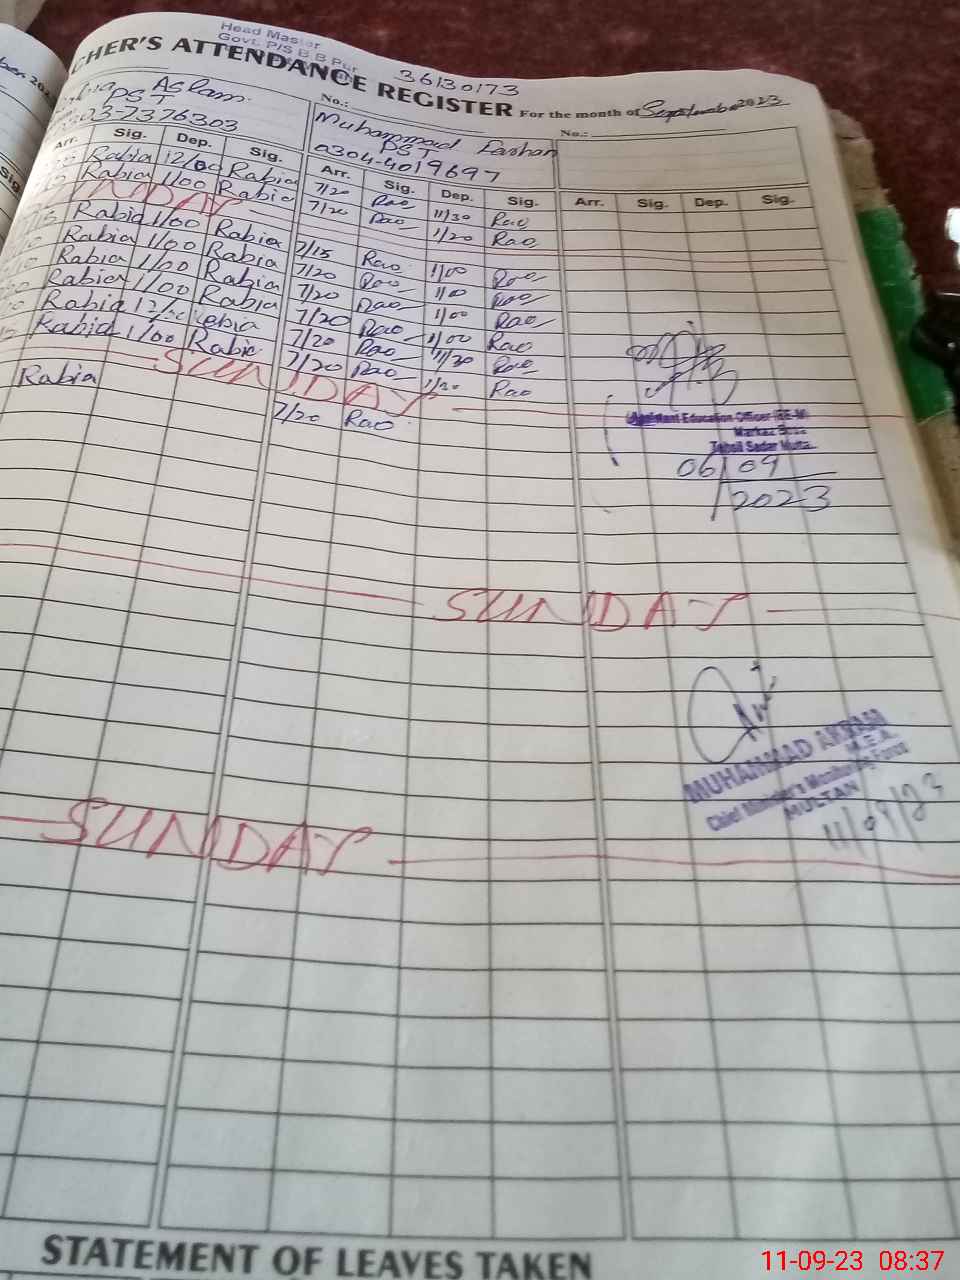 Head Master
Govt. P/S B B Pur
CHER'S ATTENDANCE REGISTER
36130173
For the month of September 2023
Aslam
PST
03-7376303
No.:
Muhammad Farhan
PST
0304-4019697
No.:
Arr. Sig. Dep. Sig. Arr. Sig. Dep. Sig. Arr. Sig. Dep. Sig.
Rabia 12/00 Rabia 7/20 Rao 11/30 Rao
Rabia 1/00 Rabia 7/20 Rao 1/20 Rao
NDAY
Rabia 1/00 Rabia 7/15 Rao 1/00 Rao
Rabia 1/00 Rabia 7/20 Rao 1/00 Rao
Rabia 1/00 Rabia 7/20 Rao 1/00 Rao
Rabia 1/00 Rabia 7/20 Rao 1/00 Rao
Rabia Rabia 7/20 Rao 11/30 Rao
Rabia 1/00 Rabia 7/20 Rao 1/20 Rao
SUNDAY
Rabia 7/20 Rao
Assistant Education Officer (EE-M)
Markaz
Tehsil Sadar Multan
06/09
/2023
SUNDAY
MUHAMMAD AKRAM
M.E.A.
Chief Minister's Monitoring Force
MULTAN
11/09/23
SUNDAY
STATEMENT OF LEAVES TAKEN
11-09-23 08:37